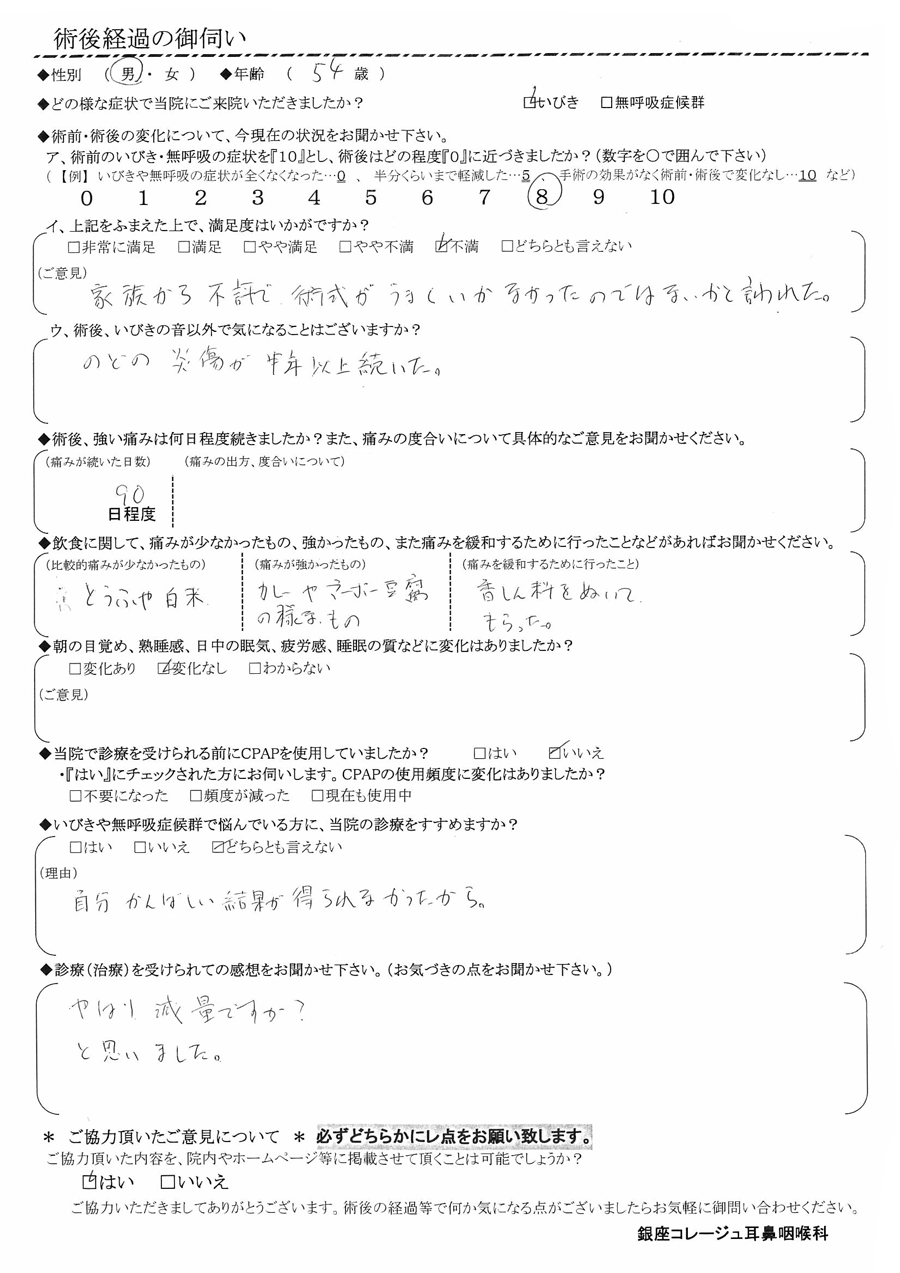 術後経過の御伺い
◆性別 (男・ 女 ) ◆年齢 ( 54 歳 )
◆どの様な症状で当院にご来院いただきましたか? ☑いびき □無呼吸症候群
◆術前・術後の変化について、今現在の状況をお聞かせ下さい。
ア、術前のいびき・無呼吸の症状を『10』とし、術後はどの程度『0』に近づきましたか?(数字を〇で囲んで下さい)
(【例】いびきや無呼吸の症状が全くなくなった…0 、 半分くらいまで軽減した…5 、手術の効果がなく術前・術後で変化なし…10 など)
0 1 2 3 4 5 6 7 8 9 10
イ、上記をふまえた上で、満足度はいかがですか?
□非常に満足 □満足 □やや満足 □やや不満 ☑不満 □どちらとも言えない
(ご意見)
家族から不評で、術式がうまくいかなかったのではないかと言われた。
ウ、術後、いびきの音以外で気になることはございますか?
のどの炎傷が半年以上続いた。
◆術後、強い痛みは何日程度続きましたか?また、痛みの度合いについて具体的なご意見をお聞かせください。
(痛みが続いた日数) (痛みの出方、度合いについて)
90
日程度
◆飲食に関して、痛みが少なかったもの、強かったもの、また痛みを緩和するために行ったことなどがあればお聞かせください。
(比較的痛みが少なかったもの) (痛みが強かったもの) (痛みを緩和するために行ったこと)
とうふや白米 カレーやマーボー豆腐 香しん料をぬいて
の様なもの もらった。
◆朝の目覚め、熟睡感、日中の眠気、疲労感、睡眠の質などに変化はありましたか?
□変化あり ☑変化なし □わからない
(ご意見)
◆当院で診療を受けられる前にCPAPを使用していましたか? □はい ☑いいえ
・『はい』にチェックされた方にお伺いします。CPAPの使用頻度に変化はありましたか?
□不要になった □頻度が減った □現在も使用中
◆いびきや無呼吸症候群で悩んでいる方に、当院の診療をすすめますか?
□はい □いいえ ☑どちらとも言えない
(理由)
自分かんばしい結果が得られなかったから。
◆診療(治療)を受けられての感想をお聞かせ下さい。(お気づきの点をお聞かせ下さい。)
やはり減量ですか?
と思いました。
* ご協力頂いたご意見について * 必ずどちらかにレ点をお願い致します。
ご協力頂いた内容を、院内やホームページ等に掲載させて頂くことは可能でしょうか?
☑はい □いいえ
ご協力いただきましてありがとうございます。術後の経過等で何か気になる点がございましたらお気軽に御問い合わせください。
銀座コレージュ耳鼻咽喉科